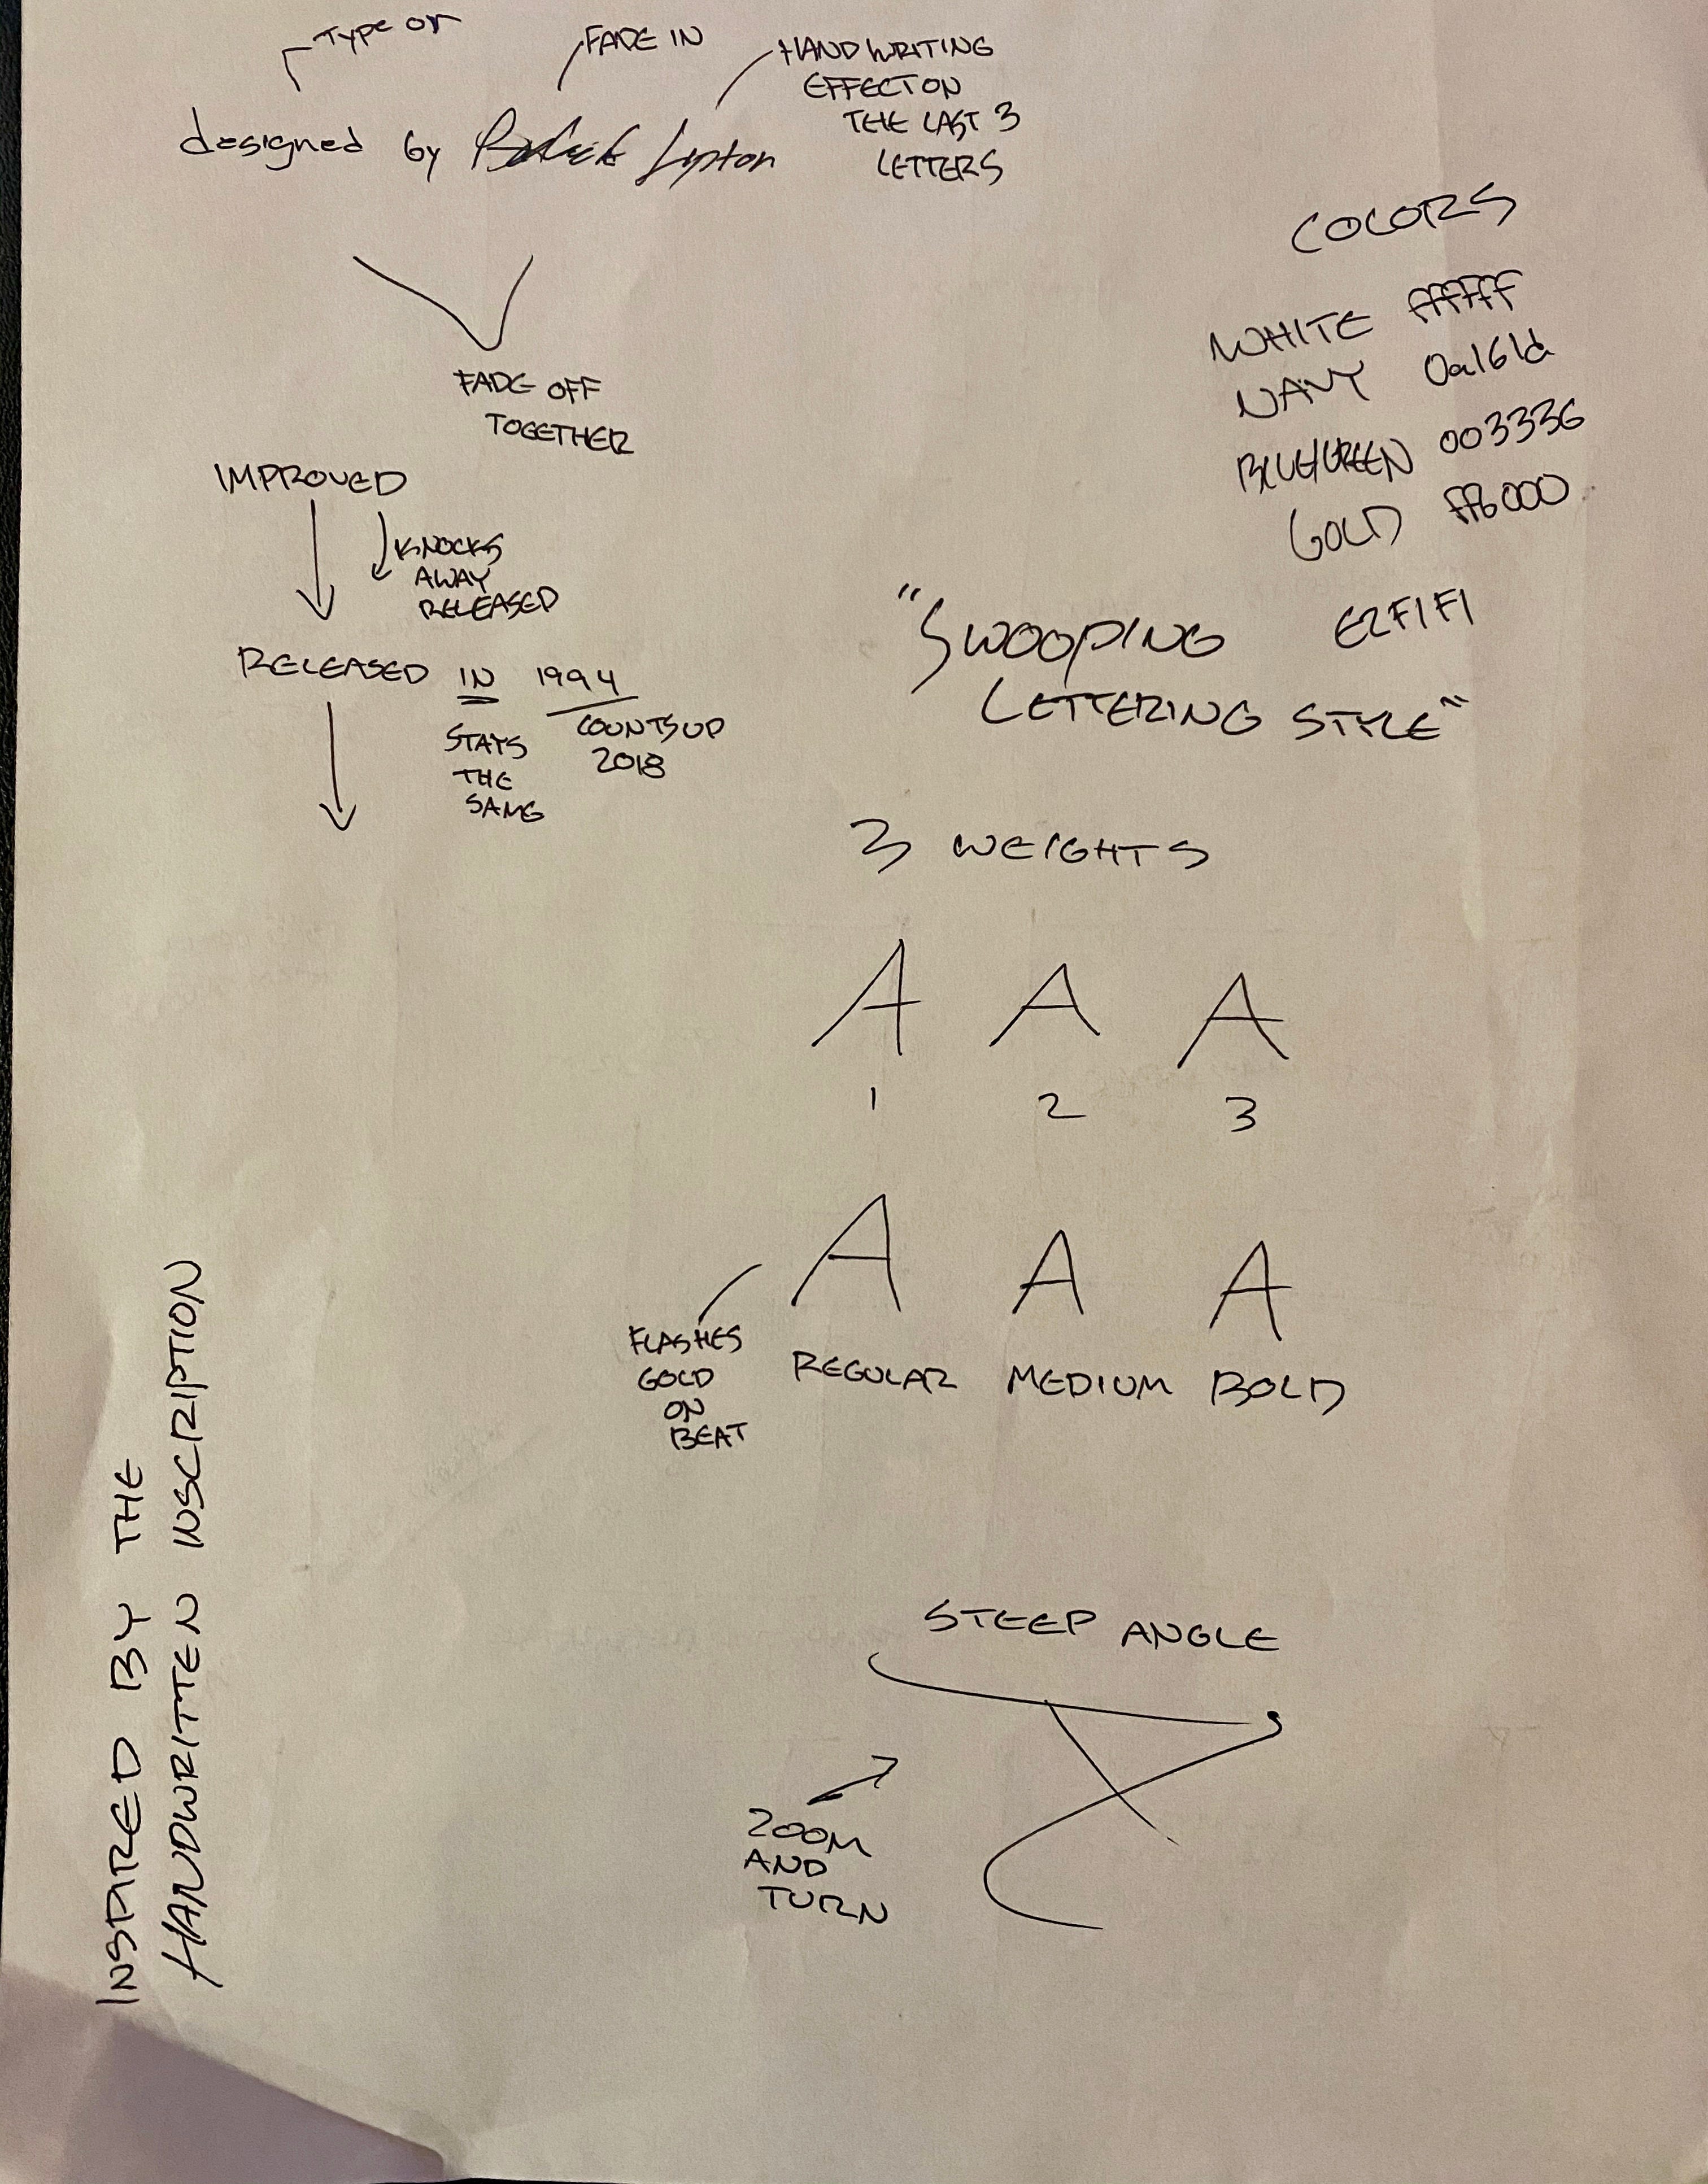 TYPE ON
FADE IN
HANDWRITING
EFFECT ON
THE LAST 3
LETTERS
designed by Lipton
FADE OFF
TOGETHER
IMPROVED
KNOCKS
AWAY
RELEASED
RELEASED IN 1994
STAYS
THE
SAME
COUNTS UP
2018
COLORS
WHITE ffffff
NAVY 0a161d
BLUE/GREEN 003336
GOLD ffb000
E2F1F1
"SWOOPING
LETTERING STYLE"
3 WEIGHTS
A A A
1 2 3
A A A
REGULAR MEDIUM BOLD
FLASHES
GOLD
ON
BEAT
STEEP ANGLE
ZOOM
AND
TURN
INSPIRED BY THE
HANDWRITTEN INSCRIPTION